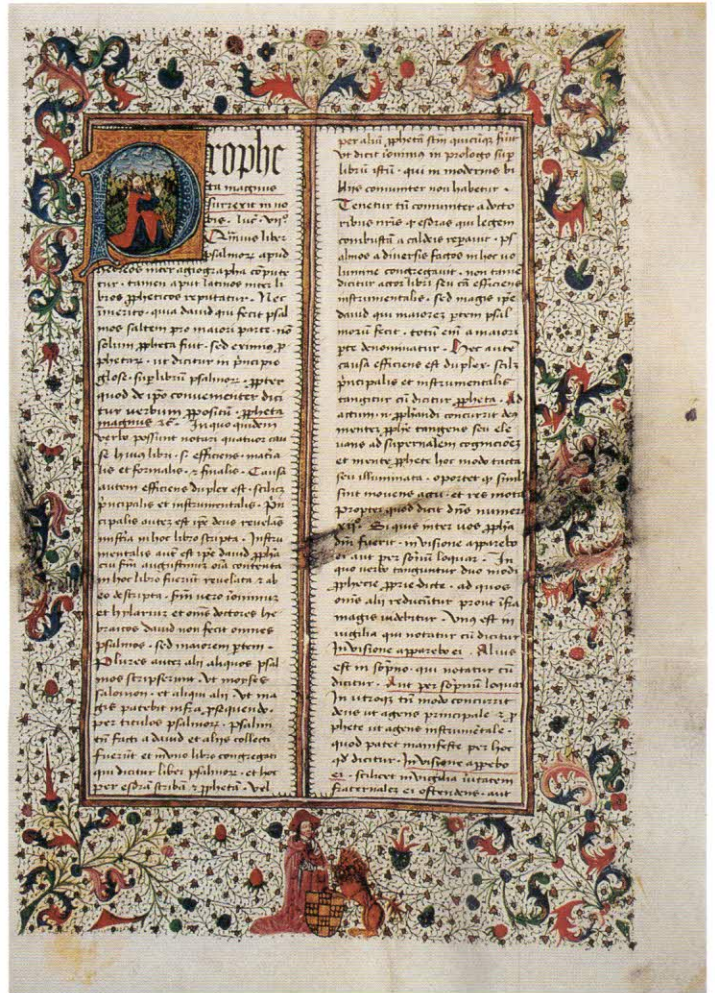 Prophe
ta magnus
surrexit in no
bis. luc. vijº
Quamuis liber
psalmorꝝ apud
hebreos inter agiographa compute
tur. tamen aput latinos inter li
bros ꝓpheticos reputatur. Nec
inmerito. quia dauid qui fecit psal
mos saltem pro maiori parte. nō
solum ꝓpheta fuit. sed eximiꝰ ꝓ
phetarꝝ. ut dicitur in p̄ncipio
glose. suꝑ librū psalmorꝝ. ꝓpter
quod de ip̄o conuenienter dici
tur verbum ꝓpositū. ꝓpheta
magnus ⁊c. In quo quidem
verbo possunt notari quatuor cau
se huius libri. s. efficiens. mat̄ia
lis et formalis. ⁊ finalis. Causa
autem efficiens duplex est. scilicꝫ
p̄ncipalis et instrumentalis. P̄n
cipalis autē est ip̄e deus reuelās
misteria in hoc libro scripta. Instru
mentalis autē est ip̄e dauid ꝓph̄a
cui sm̄ augustinū oīa contenta
in hoc libro fuerūt reuelata ⁊ ab
eo descripta. sm̄ uero ieronimū
et hylariū et om̄s doctores he
braicos dauid non fecit omnes
psalmos. sed maiorem ptem.
Plures autē alii aliquos psal
mos scripserūt. ut moyses
salomon. et aliqui alii. ut ma
gis patebit infra ꝓsequendo.
per titulos psalmorꝝ. Psalmi
tn̄ facti a dauid et aliis collecti
fuerūt et in vno libro congregati
qui dicitur liber psalmorꝝ. et hoc
per esdrā scribā ⁊ ꝓphetā. vel
per aliū ꝓphetā sc̄m quicūqꝫ fuit
vt dicit ieronimꝰ in prologo suꝑ
librū istū. qui in modernis bi
bliis communiter non habetur.
Tenetur tn̄ communiter a docto
ribus nr̄is ꝙ esdras qui legem
combustā a caldeis reparauit. ps
almos a diuersis factos in hoc uo
lumine congregauit. non tamē
dicitur actor libri seu cā efficiens
instrumentalis. sed magis ip̄e
dauid qui maiorē ptem psal
morū fecit. totū em̄ a maiori
pte denominatur. Hec autē
causa efficiens est duplex. scilꝫ
p̄ncipalis et instrumentalis
tangitur cū dicitur ꝓpheta. Ad
actum .n. ꝓphandi concurrit deꝰ
mentē ꝓphe tangens seu ele
uans ad supernalem cognicōeꝫ
et mente ꝓphete hoc modo tacta
seu illuminata. oportet ꝙ simĺ
sint mouens actu. et res mota
Propter quod dicit dn̄s numeri
xijº. Si quis inter uos ꝓph̄a
dn̄i fuerit. in visione apparebo
ei aut per sōniū loquar. In
quo uerbo tanguntur duo modi
ꝓphecie ꝓprie dicte. ad quos
om̄s alii reducūtur prout īfra
magis uidebitur. Vnꝰ est in
uigilia qui notatur cū dicitur
In visione apparebo ei. Alius
est in sōpno. qui notatur cū
dicitur. Aut per sōpniū loquar
In utroqꝫ tn̄ modo concurrit
deus ut agens principale ⁊ ꝓ
pheta ut agens instrumētale.
quod patet manifeste per hoc
qd̄ dicitur. In visione apparebo
ei. scilicet in uigilia ueritatem
fraternaleꝫ ei ostendens. aut